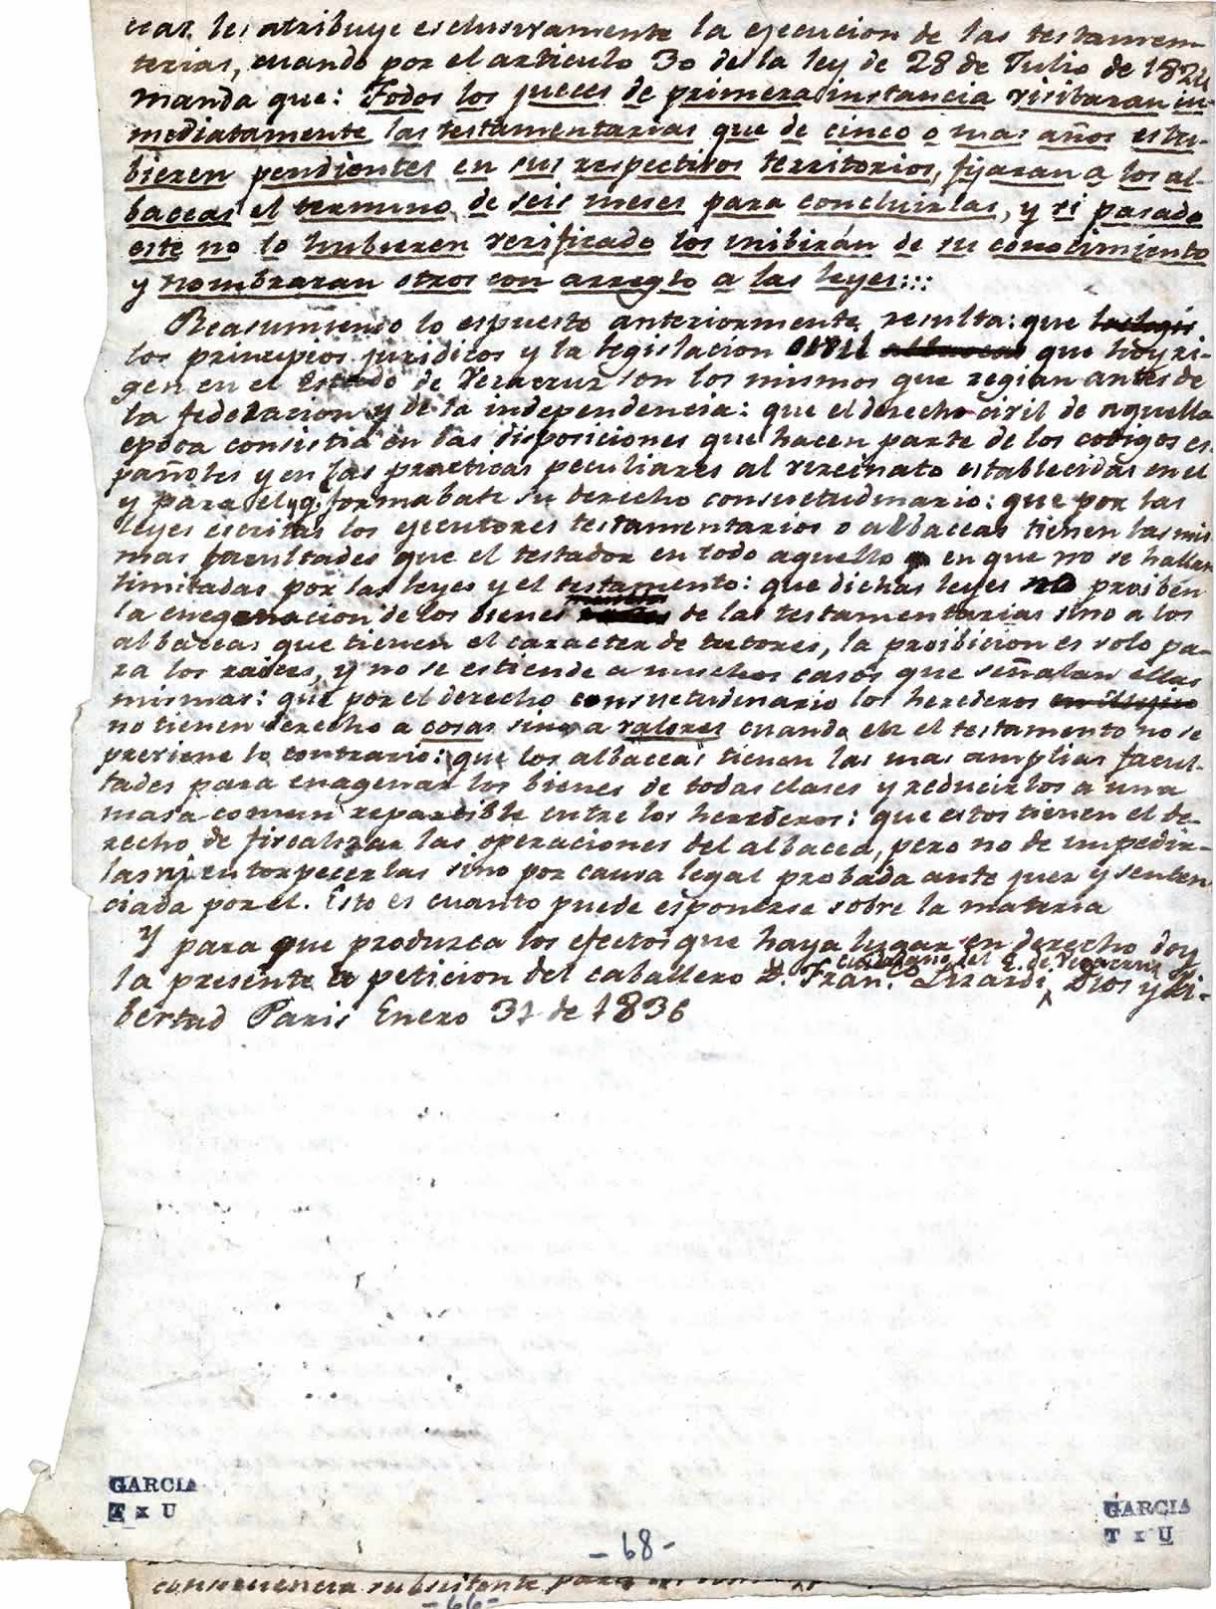 les atribuye esclusivamente la ejecucion de las testamen-
terias, cuando por el articulo 30 de la ley de 28 de Julio de 1824
manda que: Todos los jueces de primera instancia visitaran in-
mediatamente las testamentarias que de cinco o mas años estu-
bieren pendientes en sus respectivos territorios, fijaran a los al-
baceas el termino de seis meses para concluirlas, y si pasado
este no lo hubieren verificado los inibirán de su conocimiento
y nombraran otros con arreglo a las leyes:::
Reasumiendo lo espuesto anteriormente, resulta: que
los principios juridicos y la legislacion civil que hoy ri-
gen en el Estado de Veracruz son los mismos que regian antes de
la federacion y de la independencia: que el derecho civil de aquella
epoca consistia en las disposiciones que hacen parte de los codigos es-
pañoles y en las practicas peculiares al vireinato establecidas en el
y para el, q.e formaban su derecho consuetudinario: que por las
leyes escritas los ejecutores testamentarios o albaceas tienen las mis
mas facultades que el testador en todo aquello en que no se hallan
limitadas por las leyes y el testamento: que dichas leyes no proiben
la enegenacion de los bienes de las testamentarias sino a los
albaceas que tienen el caracter de tutores, la proibicion es solo pa-
ra los raices, y no se estiende a muchos casos que señalan ellas
mismas: que por el derecho consuetudinario los herederos
no tienen derecho a cosas sino a valores cuando el testamento no se
previene lo contrario: que los albaceas tienen las mas amplias facul-
tades para enagenar los bienes de todas clases y reducirlos a una
masa comun repartible entre los herederos: que estos tienen el de-
recho de fiscalizar las operaciones del albacea, pero no de impedir-
las ni entorpecerlas sino por causa legal probada ante juez y senten
ciada por el. Esto es cuanto puede esponerse sobre la materia
Y para que produzca los efectos que haya lugar en derecho doy
ciudadano del E. de Veracruz
la presente a peticion del caballero D. Fran.co Lizardi, Dios y Li-
bertad Paris Enero 31 de 1836
GARCIA
T x U
GARCIA
T x U
- 68 -
consecuencia subsitente para
- 66 -